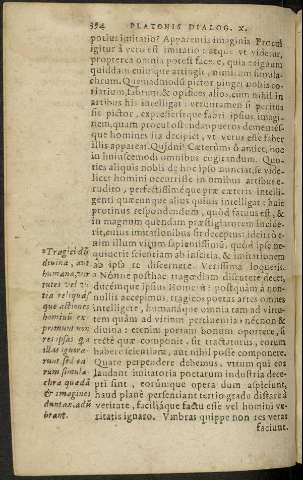 394 PLATONIS DIALOG. X.
potius imitatio? Apparentis imaginis. Procul
igitur à vero est imitatio: atque vt videtur,
propterea omnia potest facere, quia exiguum
quiddam cuiusque attingit, nimirum simula-
chrum. Quemadmodum pictor pinget nobis co-
riarium, fabrum, & opifices alios, cum nihil in
artibus his intelligat: veruntamen si peritus
sit pictor, expresseritque fabri ipsius imagi-
nem, quam procul ostendat, pueros dementes-
que homines ita decipiet, vt verus esse faber
illis appareat. Quidni? Cæterum ô amice, hoc
in huiuscemodi omnibus cogitandum. Quo-
ties aliquis nobis de hoc ipso nunciat, se vide-
licet homini occurrisse in omnibus artibus e-
rudito, perfectissimeque præ cæteris intelli-
genti quæcunque alius quiuis intelligat: huic
protinus respondendum, quòd fatuus est, &
in magnum quendam præstigiatorem incide-
rit,
nim illum virum sapientissimum, quòd ipse ne-
quiuerit scientiam ab inscitia, & imitationem
ab ipsa re discernere. Verissima loqueris.
Nónne posthac tragœdiam discutere decet,
ducemque ipsius Homerum: postquam à non-
nullis accepimus, tragicos poetas artes omnes
intelligere, humanáque omnia tam ad virtu-
tem quàm ad vitium pertinentia: nécnon &
diuina: etenim poetam bonum oportere, si
recte quæ componit, sit tractaturus, eorum
habere scientiam, aut nihil posse componere.
Quare perpendere debemus, vtrùm qui eos
laudant imitatoria poetarum industria dece-
pti sint, eorúnque opera dum aspiciunt,
haud planè persentiant tertio gradu distare à
veritate, faciliáque factu esse vel homini ve-
ritatis ignaro. Vmbras quippe non res veras
faciunt.
*Tragici dū
diuina, aut
humana, vir
tutes vel vi-
tia reliquás-
que actiones
hominū ex-
primunt non
res ipsas, quas
illas ignora-
runt, sed ea-
rum simula-
chra quædā
& imagines
duntaxat adū
brant.